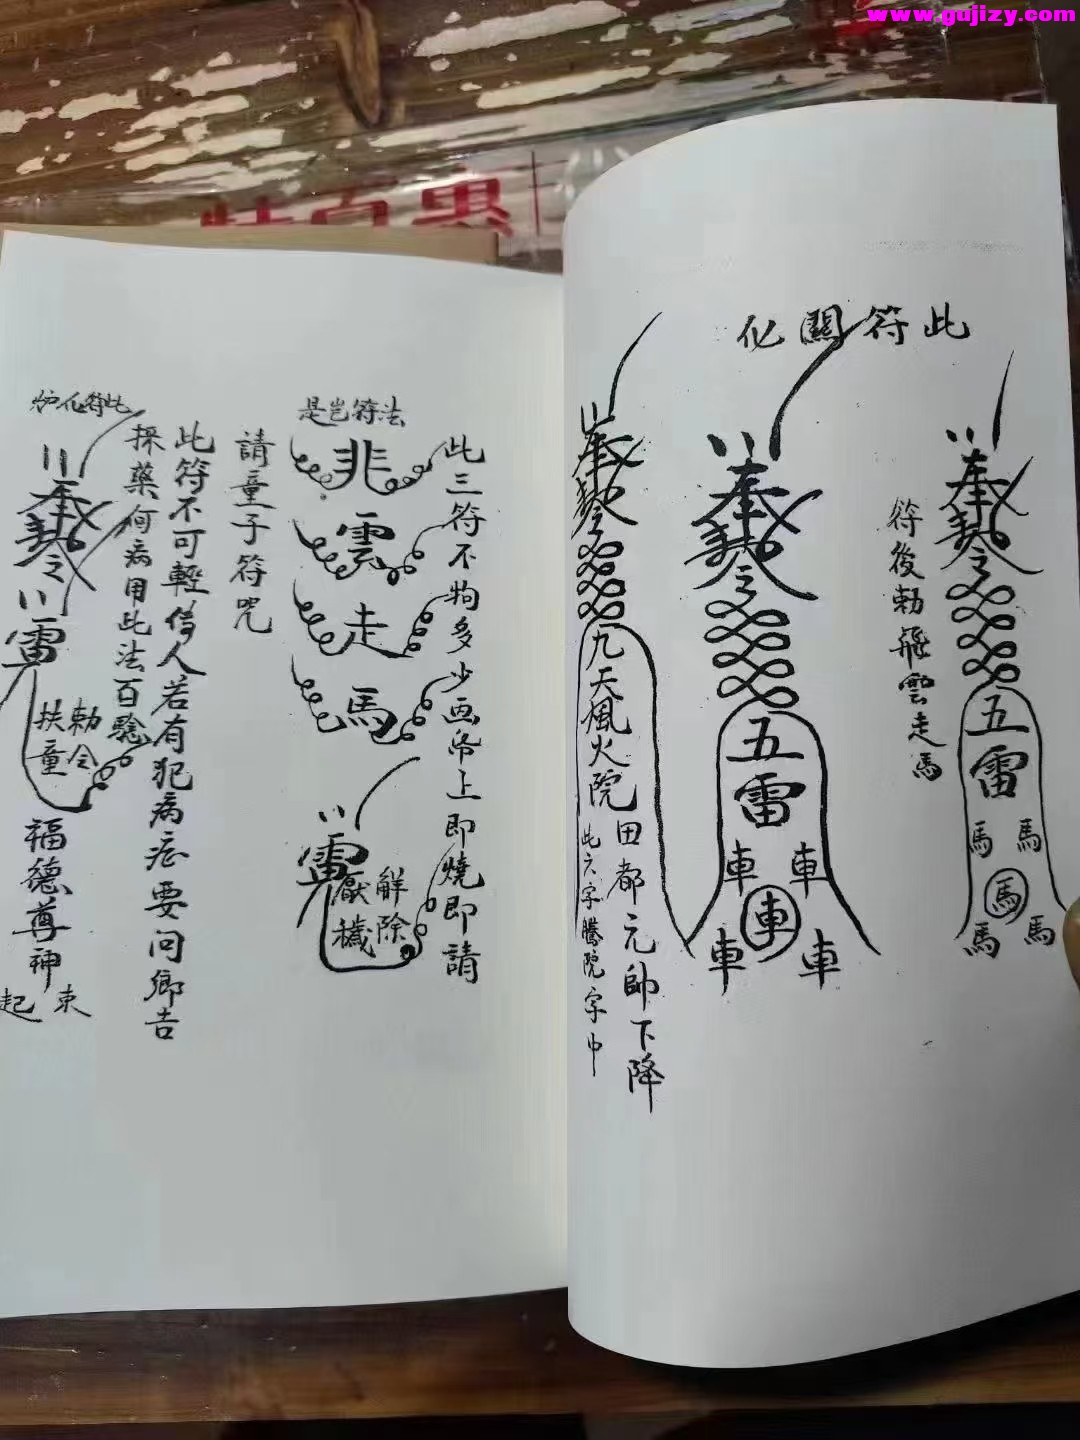 www.gujizy.com
特百惠
此符關化
奉勅令
五雷
馬
馬
馬
馬
馬
符後勅飛雲走馬
奉勅令
五雷
車
車
車
車
車
奉勅令
九天風火院田都元帥下降
此六字騰院字中
此三符不拘多少画帋上即燒即請
是岂符法
非
雲
走
馬
雷
解除
厭穢
請童子符咒
此符不可輕傳人若有犯病症要问鄉吉
採藥何病用此法百驗
此符化炉
奉勅令
雷
勅令
扶童
福德尊神
起